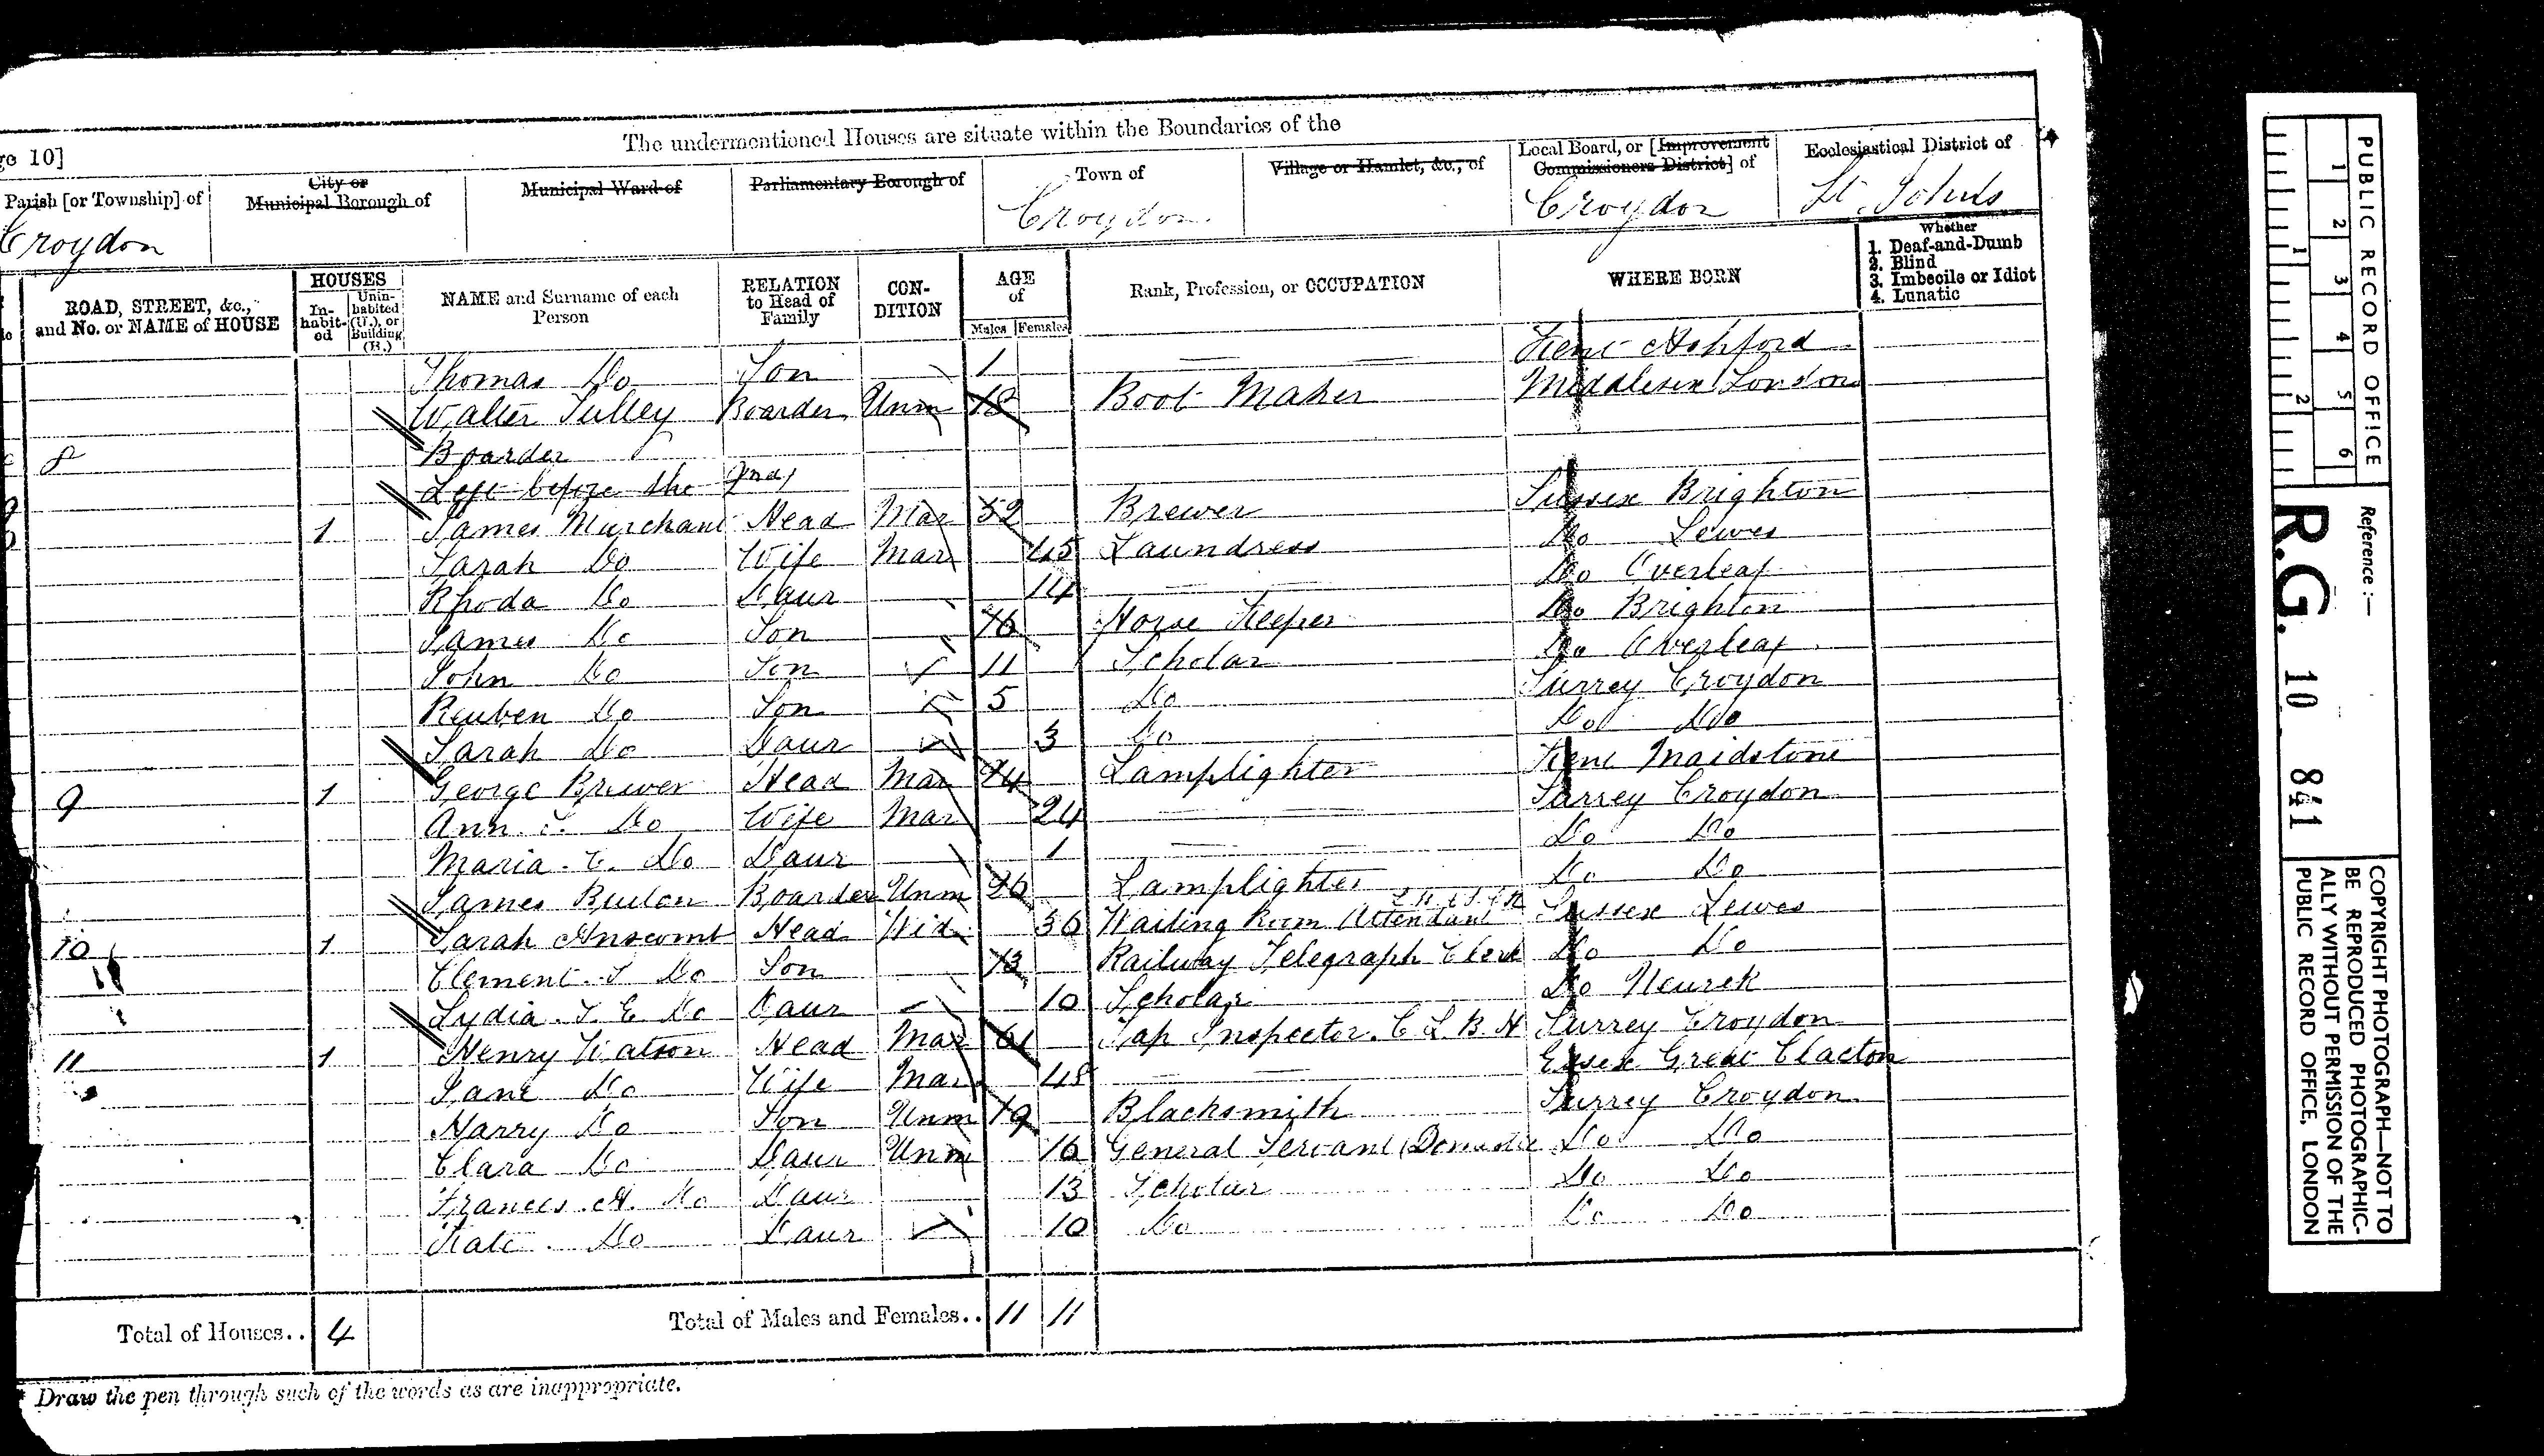 The undermentioned Houses are situate within the Boundaries of the
ge 10]
Parish [or Township] of
Croydon
City or Municipal Borough of
Municipal Ward of
Parliamentary Borough of
Town of
Croydon
Village or Hamlet, &c., of
Local Board, or [Improvement Commissioners District] of
Croydon
Ecclesiastical District of
St. Johns
ROAD, STREET, &c., and No. or NAME of HOUSE
HOUSES
In-habit-ed
Unin-habited (U.), or Building (B.)
NAME and Surname of each Person
RELATION to Head of Family
CON-DITION
AGE of
Males Females
Rank, Profession, or OCCUPATION
WHERE BORN
Whether
1. Deaf-and-Dumb
2. Blind
3. Imbecile or Idiot
4. Lunatic
Thomas Do Son 1 Kent Ashford
Walter Tulley Boarder Unm 18 Boot Maker Middlesex London
8 Boarder
Left before the
1 James Murchant Head Mar 52 Brewer Sussex Brighton
Sarah Do Wife Mar 45 Laundress Do Lewes
Rhoda Do Daur 14 Do Overleaf
James Do Son 16 Horse Keeper Do Brighton
John Do Son 11 Scholar Do Overleaf
Reuben Do Son 5 Do Surrey Croydon
Sarah Do Daur 3 Do Do Do
9 1 George Brewer Head Mar 24 Lamplighter Kent Maidstone
Ann Do Wife Mar 24 Surrey Croydon
Maria C. Do Daur 1 Do Do
James Boarder Unm 26 Lamplighter Do Do
10 1 Sarah Anscomb Head Wid 36 Waiting Room Attendant Sussex Lewes
Clement Do Son 13 Railway Telegraph Clerk Do Do
Lydia Do Daur 10 Scholar Do
11 1 Henry Watson Head Mar 61 Tap Inspector. C L B H Surrey Croydon
Jane Do Wife Mar 48 Essex Great Clacton
Harry Do Son Unm 19 Blacksmith Surrey Croydon
Clara Do Daur Unm 16 General Servant (Domestic Do Do
Frances A. Do Daur 13 Scholar Do Do
Kate Do Daur 10 Do Do Do
Total of Houses.. 4
Total of Males and Females.. 11 11
* Draw the pen through such of the words as are inappropriate.
PUBLIC RECORD OFFICE
1 2 3 4 5 6
1 2
Reference :—
R.G. 10 841
COPYRIGHT PHOTOGRAPH—NOT TO
BE REPRODUCED PHOTOGRAPHIC-
ALLY WITHOUT PERMISSION OF THE
PUBLIC RECORD OFFICE, LONDON